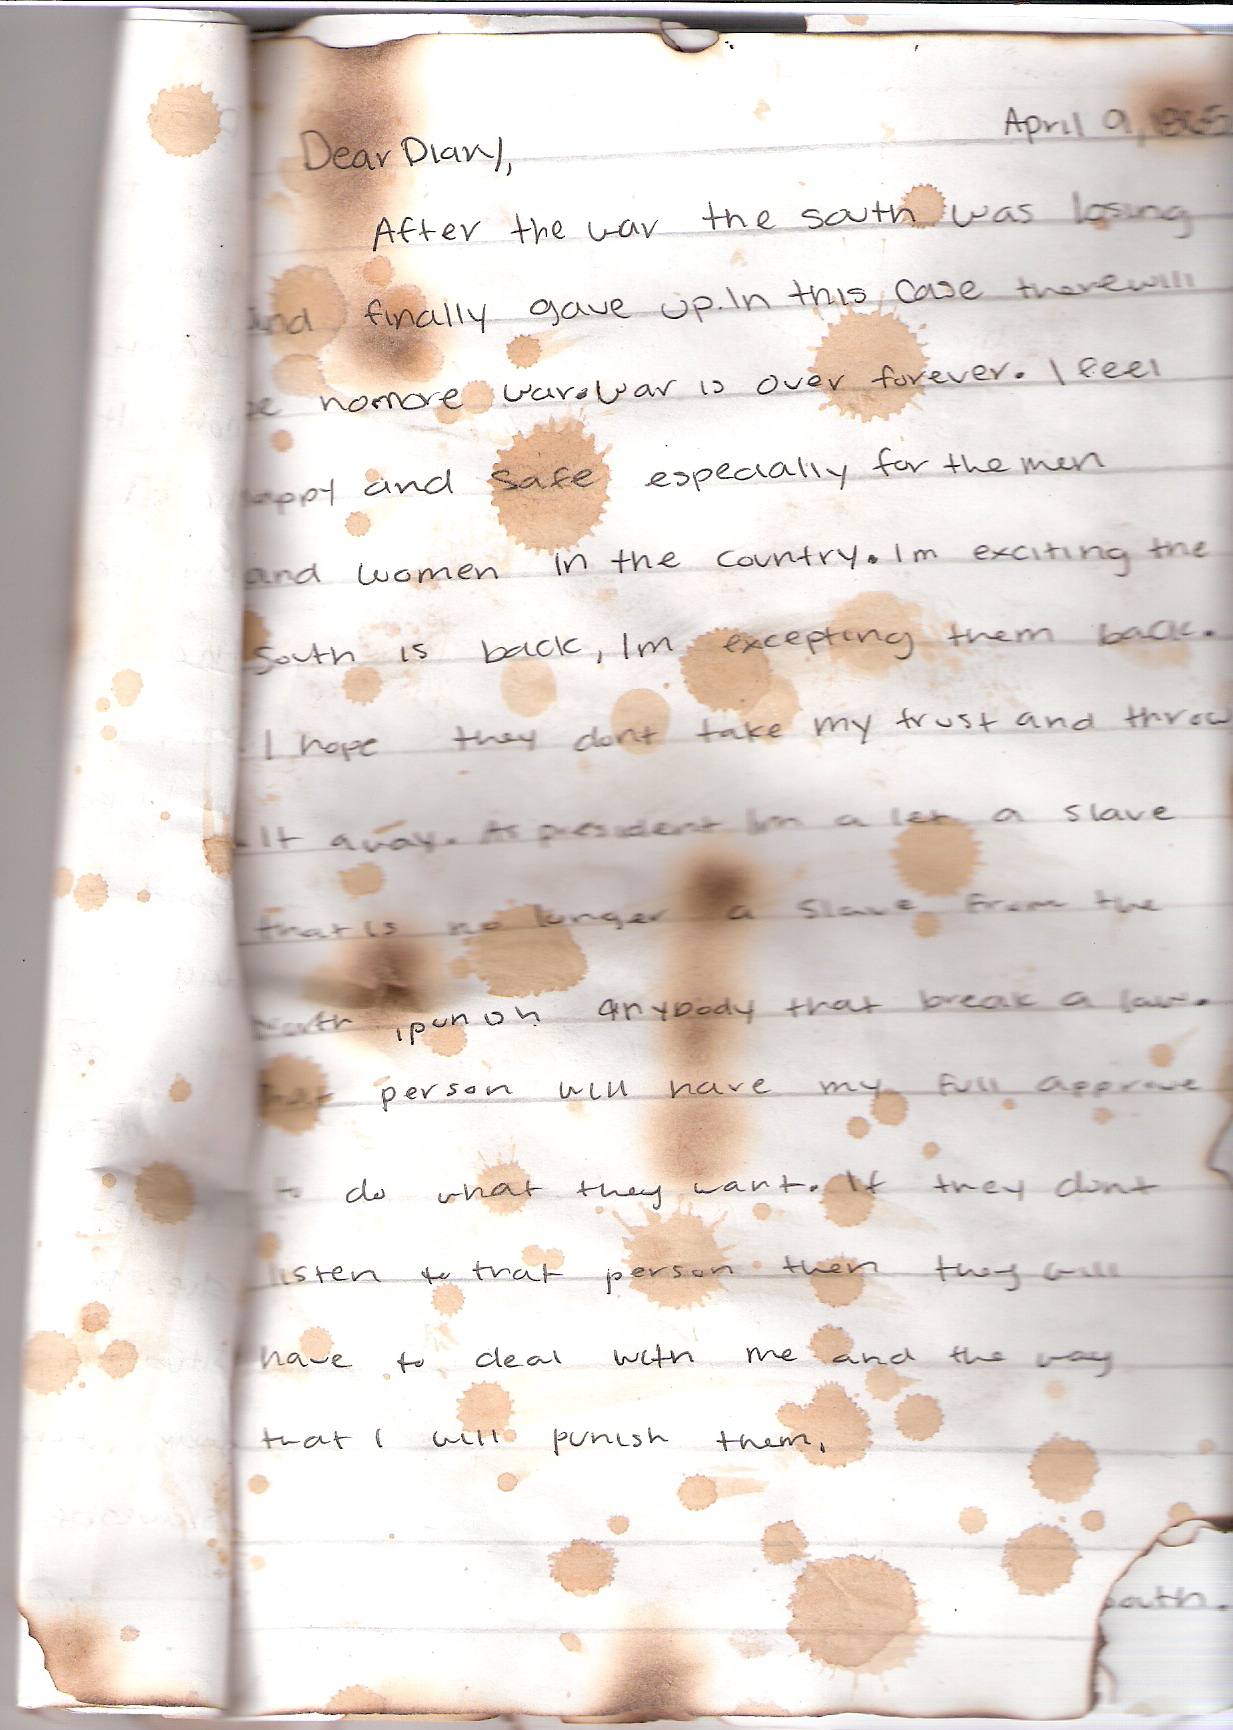 April 9, 1865
Dear Diary,
After the war the south was losing
and finally gave up. In this case therewill
be nomore war. War is over forever. I feel
happy and safe especially for the men
and women in the country. Im exciting the
South is back, Im excepting them back.
I hope they dont take my trust and throw
it away. As president Im a let a slave
that is no longer a slave from the
North punish anybody that break a law.
That person will have my full approve
to do what they want. If they dont
listen to that person then they will
have to deal with me and the way
that I will punish them.
outh.